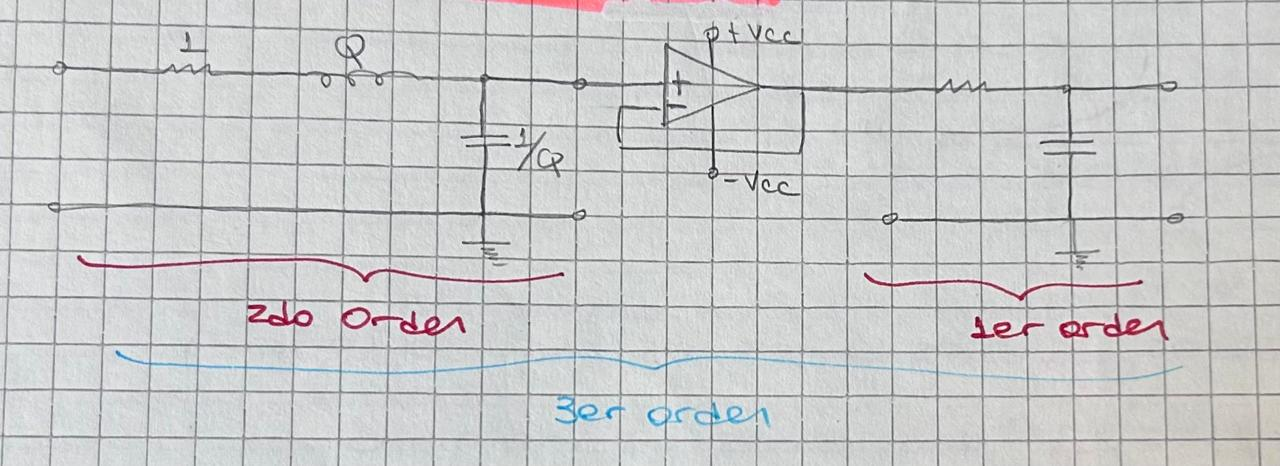 1
Q
+ Vcc
+
-
1/Q
- Vcc
2do Orden
1er orden
3er orden